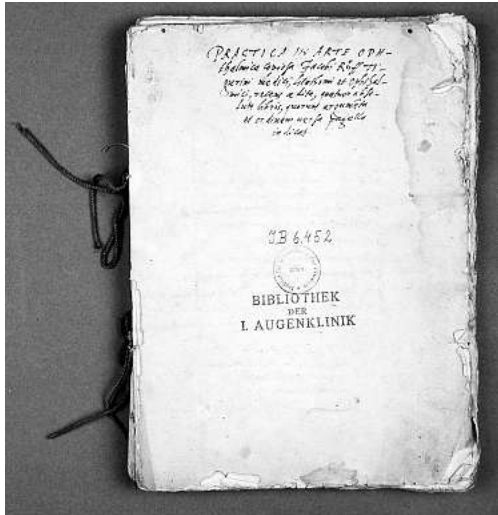 PRACTICA IN ARTE OPH-
thalmica copiosa Jacobi Ruff Ti-
gurini medici, lithotomi et ophthal-
mici, recens aedita, quatuor abso-
luta libris, quorum argumenta
et ordinem versa pagella
indicat
JB 6.452
BIBLIOTHEK
DER
I. AUGENKLINIK